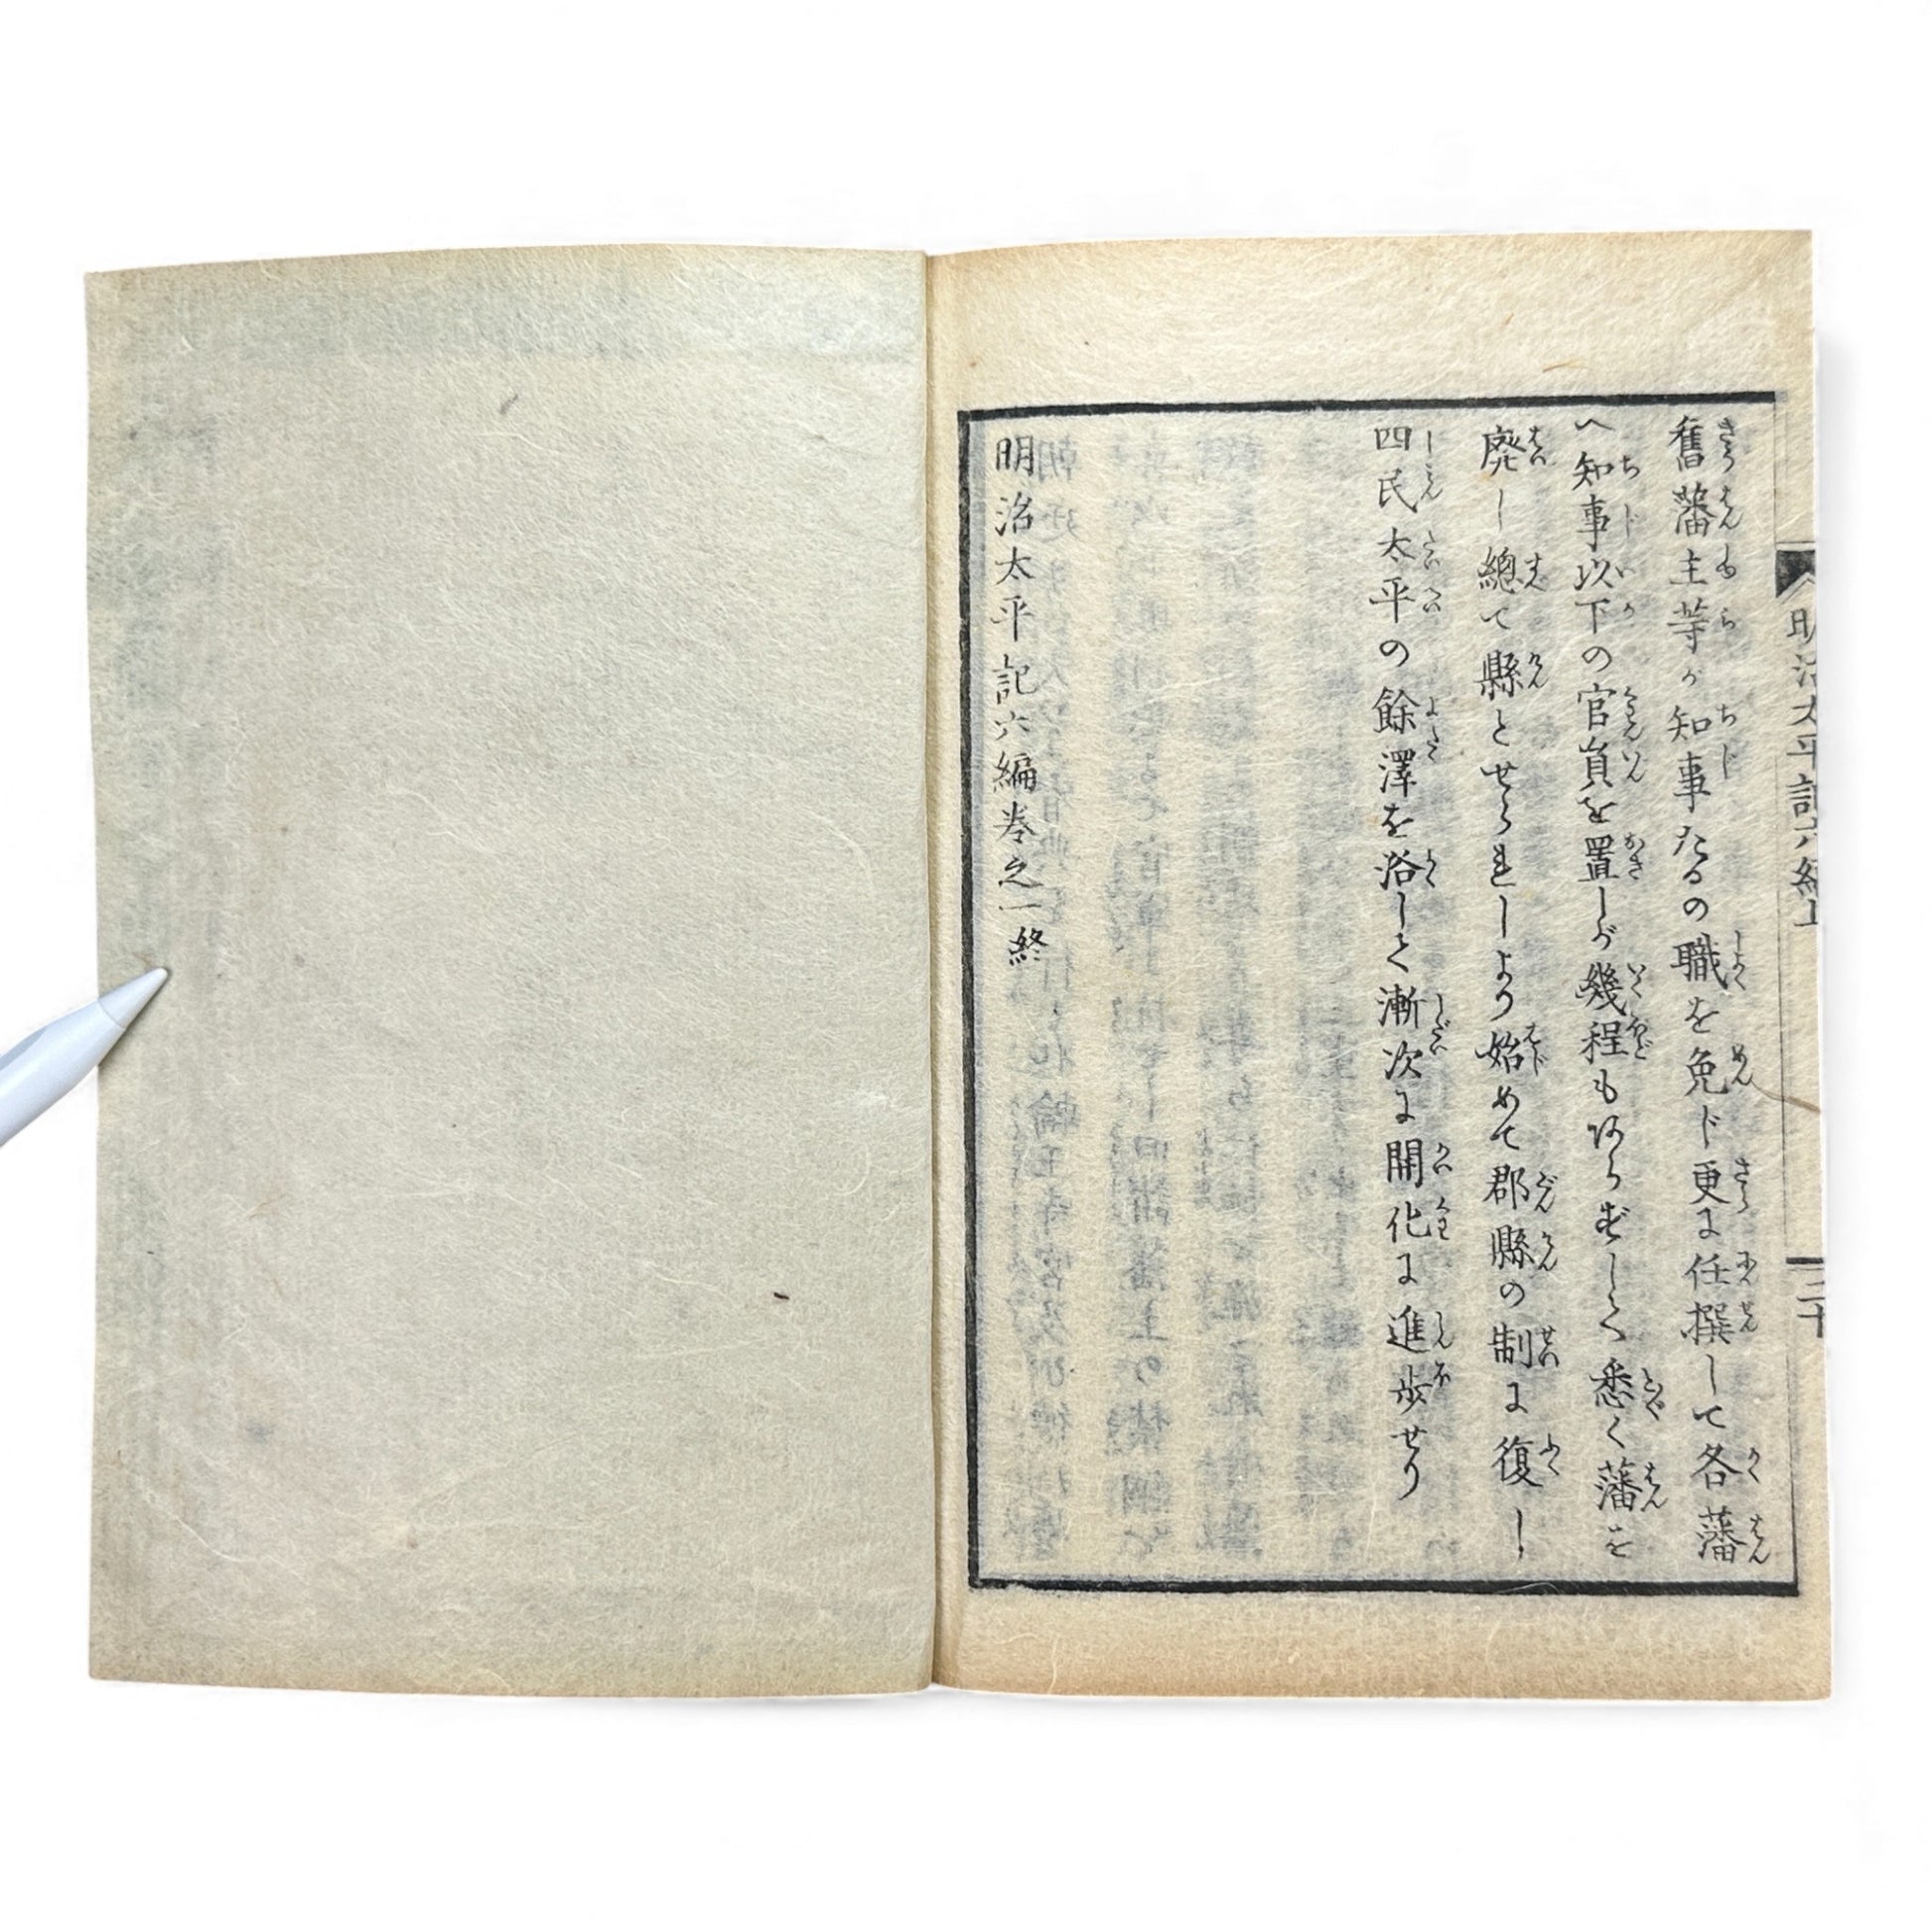 明治太平記六編上 二十
舊藩主等が知事たるの職を免じ更に任撰して各藩
へ知事以下の官員を置しが幾程もあらずして悉く藩を
廃し總て縣とせられしより始めて郡縣の制に復し
四民太平の餘澤を浴して漸次に開化に進歩せり
明治太平記六編巻之一終